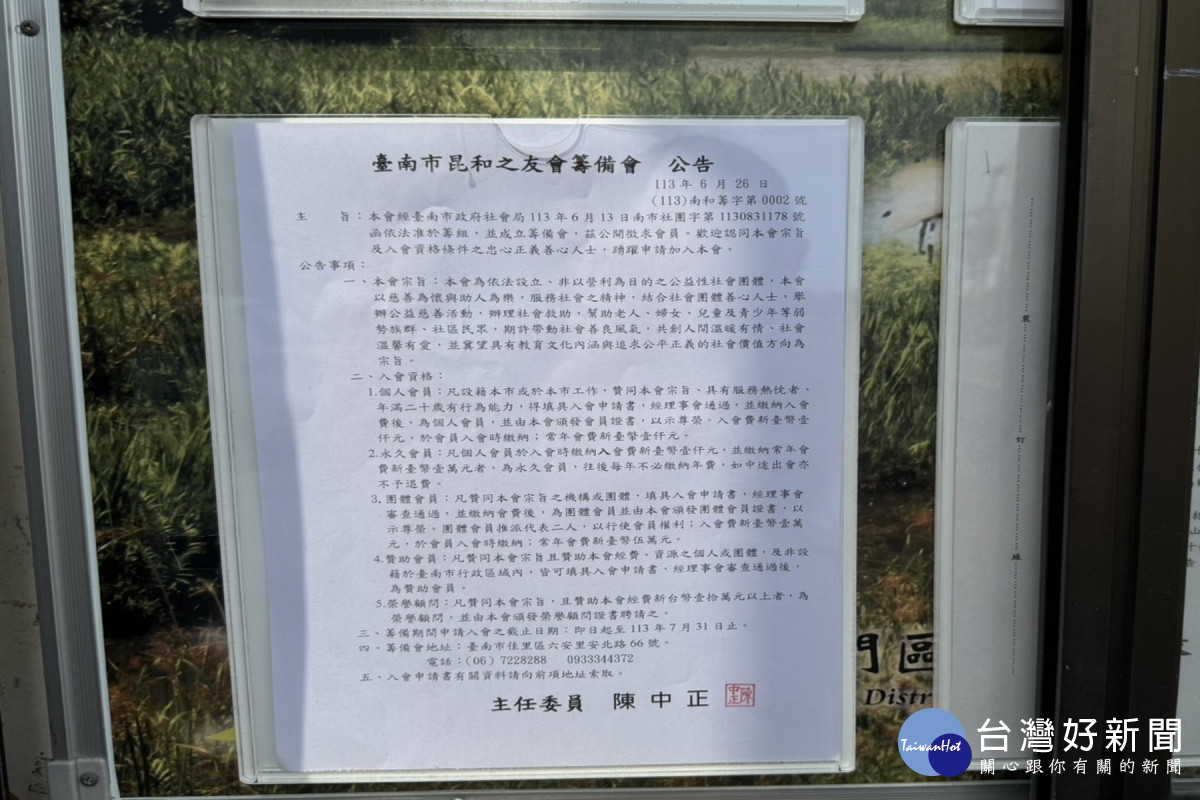 臺南市昆和之友會籌備會　公告
113 年 6 月 26 日
(113)南和籌字第 0002 號
主　旨：本會經臺南市政府社會局 113 年 6 月 13 日南市社團字第 1130831178 號
函依法准於籌組，並成立籌備會，茲公開徵求會員。歡迎認同本會宗旨
及入會資格條件之忠心正義善心人士，踴躍申請加入本會。
公告事項：
一、本會宗旨：本會為依法設立、非以營利為目的之公益性社會團體，本會
以慈善為懷與助人為樂，服務社會之精神，結合社會團體善心人士，舉
辦公益慈善活動，辦理社會救助，幫助老人、婦女、兒童及青少年等弱
勢族群、社區民眾，期許帶動社會善良風氣，共創人間溫暖有情、社會
溫馨有愛，並冀望具有教育文化內涵與追求公平正義的社會價值方向為
宗旨。
二、入會資格：
1.個人會員：凡設籍本市或於本市工作，贊同本會宗旨、具有服務熱忱者、
年滿二十歲有行為能力，得填具入會申請書，經理事會通過，並繳納入會
費後，為個人會員，並由本會頒發會員證書，以示尊榮。入會費新臺幣壹
仟元，於會員入會時繳納；常年會費新臺幣壹仟元。
2.永久會員：凡個人會員於入會時繳納入會費新臺幣壹仟元，並繳納常年會
費新臺幣壹萬元者，為永久會員，往後每年不必繳納年費，如中途出會亦
不予退費。
3.團體會員：凡贊同本會宗旨之機構或團體，填具入會申請書，經理事會
審查通過，並繳納會費後，為團體會員並由本會頒發團體會員證書，以
示尊榮。團體會員推派代表二人，以行使會員權利；入會費新臺幣壹萬
元，於會員入會時繳納；常年會費新臺幣伍萬元。
4.贊助會員：凡贊同本會宗旨且贊助本會經費、資源之個人或團體，及非設
籍於臺南市行政區域內，皆可填具入會申請書，經理事會審查通過後，
為贊助會員。
5.榮譽顧問：凡贊同本會宗旨，且贊助本會經費新台幣壹拾萬元以上者，為
榮譽顧問，並由本會頒發榮譽顧問證書聘請之。
三、籌備期間申請入會之截止日期：即日起至 113 年 7 月 31 日止。
四、籌備會地址：臺南市佳里區六安里安北路 66 號。
電話：(06) 7228288　0933344372
五、入會申請書有關資料請向前項地址索取。
主任委員　陳中正
陳中正
裝
訂
線
門區
Distr
TaiwanHot
台灣好新聞
關心跟你有關的新聞